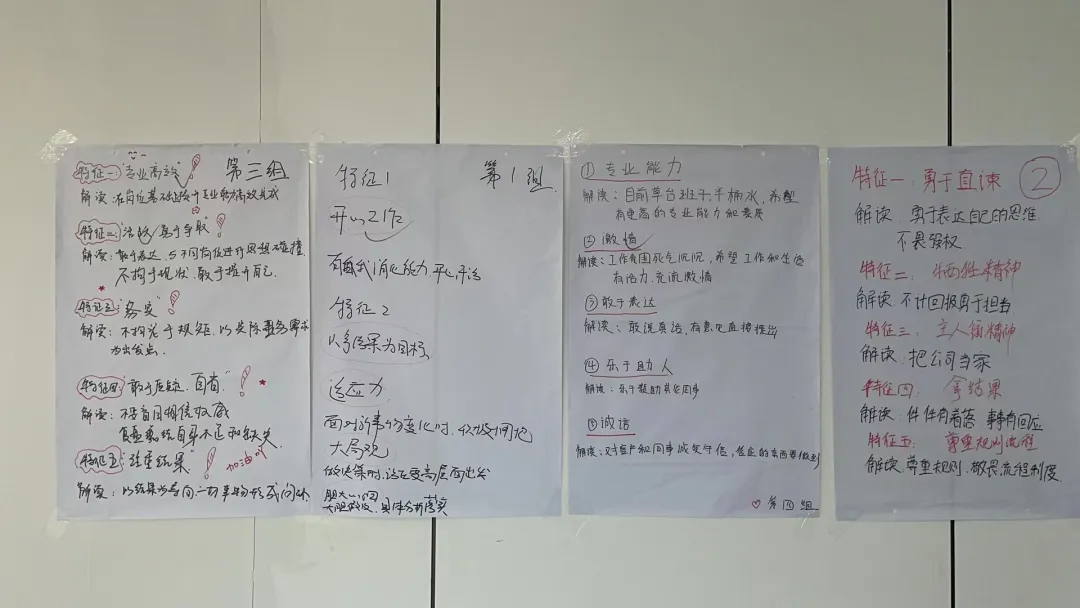 第三组
特征一:"专业高效"
解读:在岗位基础上提升专业能力高效完成
特征二:"活敢 勇于争取"
解读:敢于表达,与不同岗位进行思想碰撞
不拘于现状,敢于提升自己.
特征三:"务实"
解读:不拘泥于规矩,以实际业务需求
为出发点.
特征四:敢于质疑,自省
解读:不盲目相信权威
自身不足和缺失.
特征五:"注重结果"
加油
解读:以结果为导向一切事物形成闭环
第1组
特征1
开心工作
自我消化能力,开心生活
特征2
以多结果为目标
适应力
面对的变化时,积极调
大局观
做决策时,站在更高层面出发
胆大心细
大胆,具体分析落实
①专业能力
解读:目前草台班子,半桶水,希望
有更高的专业能力和素质
②激情
解读:工作氛围死气沉沉,希望工作和生活
有活力,充满激情
③敢于表达
解读:敢说真话,有意见直接提出
④乐于助人
解读:乐于帮助其他同事
⑤诚信
解读:对客户和同事诚实守信,答应的东西要做到
♡第四组
②
特征一:勇于直谏
解读:勇于表达自己的思维
不畏强权
特征二:牺牲精神
解读:不计回报勇于担当
特征三:主人翁精神
解读:把公司当家
特征四:拿结果
解读:件件有着落 事事有回应
特征五:尊重规则流程
解读:尊重规则、敬畏流程制度